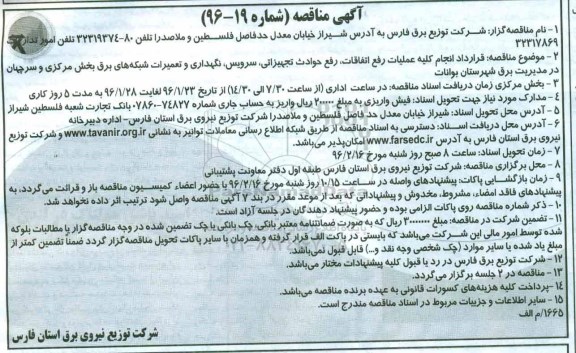 آگهی مناقصه (شماره ۱۹-۹۶)
۱- نام مناقصه‌گزار: شرکت توزیع برق فارس به آدرس شیراز خیابان معدل حدفاصل فلسطین و ملاصدرا تلفن ۸۰-۳۲۳۱۹۳۷۴ تلفن امور تدارکات
۳۲۳۱۷۸۶۹
۲- موضوع مناقصه: قرارداد انجام کلیه عملیات رفع اتفاقات، رفع حوادث تجهیزاتی، سرویس، نگهداری و تعمیرات شبکه‌های برق بخش مرکزی و سرچهان
در مدیریت برق شهرستان بوانات
۳- بخش مرکزی زمان دریافت اسناد مناقصه: در ساعت اداری (از ساعت ۷/۳۰ الی ۱۴/۳۰) از تاریخ ۹۶/۱/۲۳ لغایت ۹۶/۱/۲۸ به مدت ۵ روز کاری
۴- مدارک مورد نیاز جهت تحویل اسناد: فیش واریزی به مبلغ ۲۰۰۰۰۰ ریال واریز به حساب جاری شماره ۰۷۸۶۰۰۷۴۸۲۷ بانک تجارت شعبه فلسطین شیراز
۵- آدرس محل تحویل اسناد: شیراز خیابان معدل حد فاصل فلسطین و ملاصدرا شرکت توزیع نیروی برق استان فارس- اداره دبیرخانه
۶- آدرس محل دریافت اسناد: دسترسی به اسناد مناقصه از طریق شبکه اطلاع رسانی معاملات توانیر به نشانی www.tavanir.org.ir و شرکت توزیع
نیروی برق استان فارس به آدرس www.farsedc.ir امکان‌پذیر می‌باشد.
۷- زمان تحویل اسناد: ساعت ۸ صبح روز شنبه مورخ ۹۶/۲/۱۶
۸- محل برگزاری مناقصه: شرکت توزیع نیروی برق استان فارس طبقه اول دفتر معاونت پشتیبانی
۹- زمان بازگشایی پاکات: پیشنهادهای واصله در ساعت ۱۰/۱۵ روز شنبه مورخ ۹۶/۲/۱۶ با حضور اعضاء کمیسیون مناقصه باز و قرائت می‌گردد، به
پیشنهادهای فاقد امضاء، مشروط، مخدوش و پیشنهاداتی که بعد از موعد مقرر در بند ۷ آگهی مناقصه واصل شود ترتیب اثر داده نخواهد شد.
۱۰- ذکر شماره مناقصه روی پاکات الزامی بوده و حضور پیشنهاد دهندگان در جلسه آزاد است.
۱۱- تضمین شرکت در مناقصه: مبلغ ۳۰۰۰۰۰۰۰۰ ریال که به صورت ضمانتنامه معتبر بانکی، چک بانکی یا چک تضمین شده در وجه مناقصه‌گزار یا مطالبات بلوکه
شده توسط امور مالی این شرکت می‌باشد که بایستی در پاکت الف قرار گرفته و همزمان با سایر پاکات تحویل مناقصه‌گزار گردد ضمنا تضمین کمتر از
مبلغ یاد شده یا سایر موارد (چک شخصی وجه نقد و...) قابل قبول نمی‌باشد.
۱۲- شرکت توزیع برق فارس در رد یا قبول کلیه پیشنهادات مختار می‌باشد.
۱۳- مناقصه در ۲ جلسه برگزار می‌گردد.
۱۴- پرداخت کلیه هزینه‌های کسورات قانونی به عهده برنده مناقصه می‌باشد.
۱۵- سایر اطلاعات و جزییات مربوط در اسناد مناقصه مندرج است.
۱۶۶۵/م الف
شرکت توزیع نیروی برق استان فارس